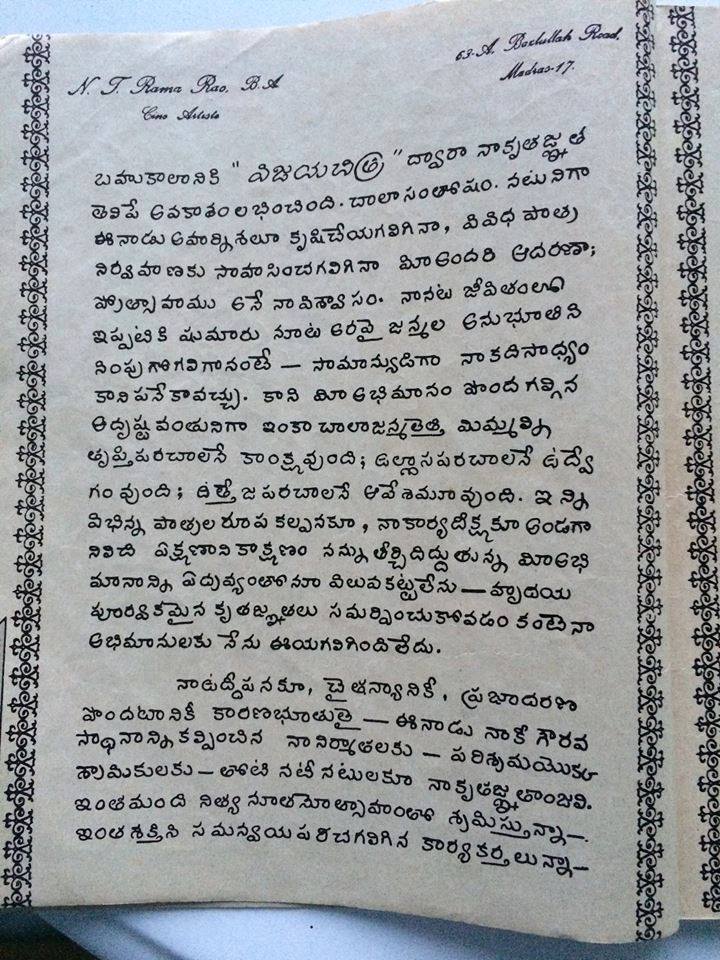 N. T. Rama Rao. B.A
Cine Artiste
63-A. Bazlullah Road.
Madras-17.
బహుకాలానికి "విజయచిత్ర" ద్వారా నాకృతజ్ఞత
తెలిపే అవకాశం లభించింది. చాలాసంతోషం. నటునిగా
ఈనాడు అహర్నిశలూ కృషిచేయగలిగినా, వివిధ పాత్ర
నిర్వహణకు సాహసించగలిగినా మీఅందరి ఆదరణా;
ప్రోత్సాహము అనే నావిశ్వాసం. నానట జీవితంలో
ఇప్పటికి షుమారు నూట అరవై జన్మల అనుభూతిని
నింపుగోగలిగానంటే — సామాన్యుడిగా నాకదిసాధ్యం
కానిపనేకావచ్చు. కాని మీఅభిమానం పొందగల్గిన
అదృష్టవంతునిగా ఇంకాచాలాజన్మలెత్తి మిమ్మల్ని
తృప్తిపరచాలనే కాంక్షవుంది; ఉల్లాసపరచాలనే ఉద్వే
గంవుంది; ఉత్తేజపరచాలనే ఆవేశమూవుంది. ఇన్ని
విభిన్న పాత్రలరూపకల్పనకూ, నాకార్యదీక్షకూ అండగా
నిలిచి ఏక్షణానికాక్షణం నన్నుతీర్చిదిద్దుతున్న మీఅభి
మానాన్ని ఏదివ్యంతోనూ విలువకట్టలేను — హృదయ
పూర్వకమైన కృతజ్ఞతలు సమర్పించుకోవడం కంటెనా
అభిమానులకు నేను ఈయగలిగిందిలేదు.
నాఉద్దీపనకూ, చైతన్యానికీ, ప్రజాదరణ
పొందటానికీ కారణభూతులై — ఈనాడు నాకీ గౌరవ
స్థానాన్నికల్పించిన నానిర్మాతలకు — పరిశ్రమయొక్క
శ్రామికులకు — తోటి నటీనటులకూ నాకృతజ్ఞతాంజలి.
ఇంతమంది నిత్యనూతనోత్సాహంతో శ్రమిస్తున్నా—.
ఇంతశక్తిని సమన్వయపరచగలిగిన కార్యకర్తలున్నా—